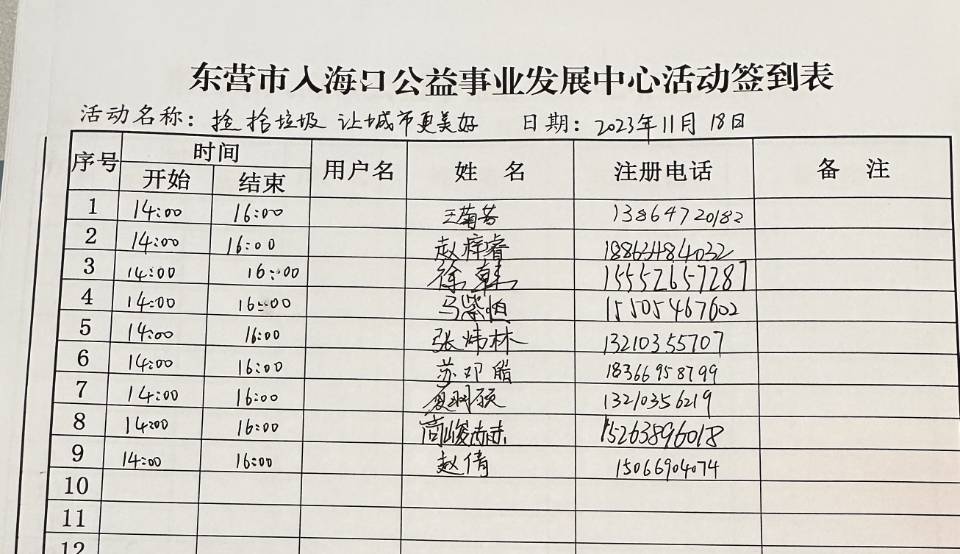 东营市入海口公益事业发展中心活动签到表
活动名称：捡拾垃圾 让城市更美好 日期：2023年11月18日
序号 时间 用户名 姓名 注册电话 备注
开始 结束
1 14:00 16:00 王菊芳 13864720182
2 14:00 16:00 赵梓睿 18863484032
3 14:00 16:00 徐 15552657287
4 14:00 16:00 马紫怡 15505467602
5 14:00 16:00 张炜林 13210355707
6 14:00 16:00 苏邓 18366958799
7 14:00 16:00 13210356219
8 14:00 16:00 15263896018
9 14:00 16:00 赵倩 15066904074
10
11
12